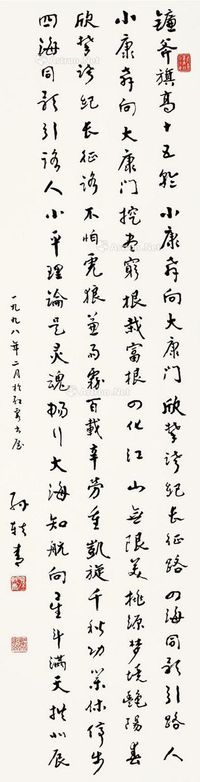 镰斧旗高十五 小康奔向大康门 欣誓跨纪长征路 四海同歌引路人
小康奔向大康门 挖尽穷根栽富根 四化江山無限美 桃源梦境艳陽春
欣誓跨纪长征路 不怕虎狼兼雨霧 百载辛劳重凱旋 千秋功業休停步
四海同歌引路人 小平理論是灵魂 畅行大海知航向 星斗满天拱北辰
一九九八年二月於書屋
孙轶青